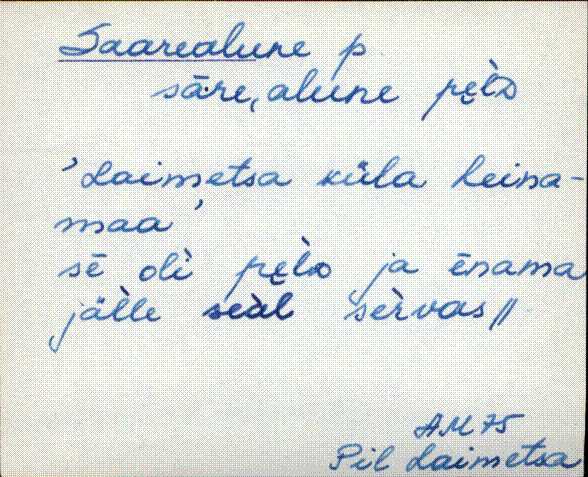 Saarealune p
sāre,alune pe̮l̀D
'Laimetsa küla heina-
maa'
sē oli pe̮l̀D ja ēnama
jälle seàl sèrvas //
AM 75
Pil Laimetsa